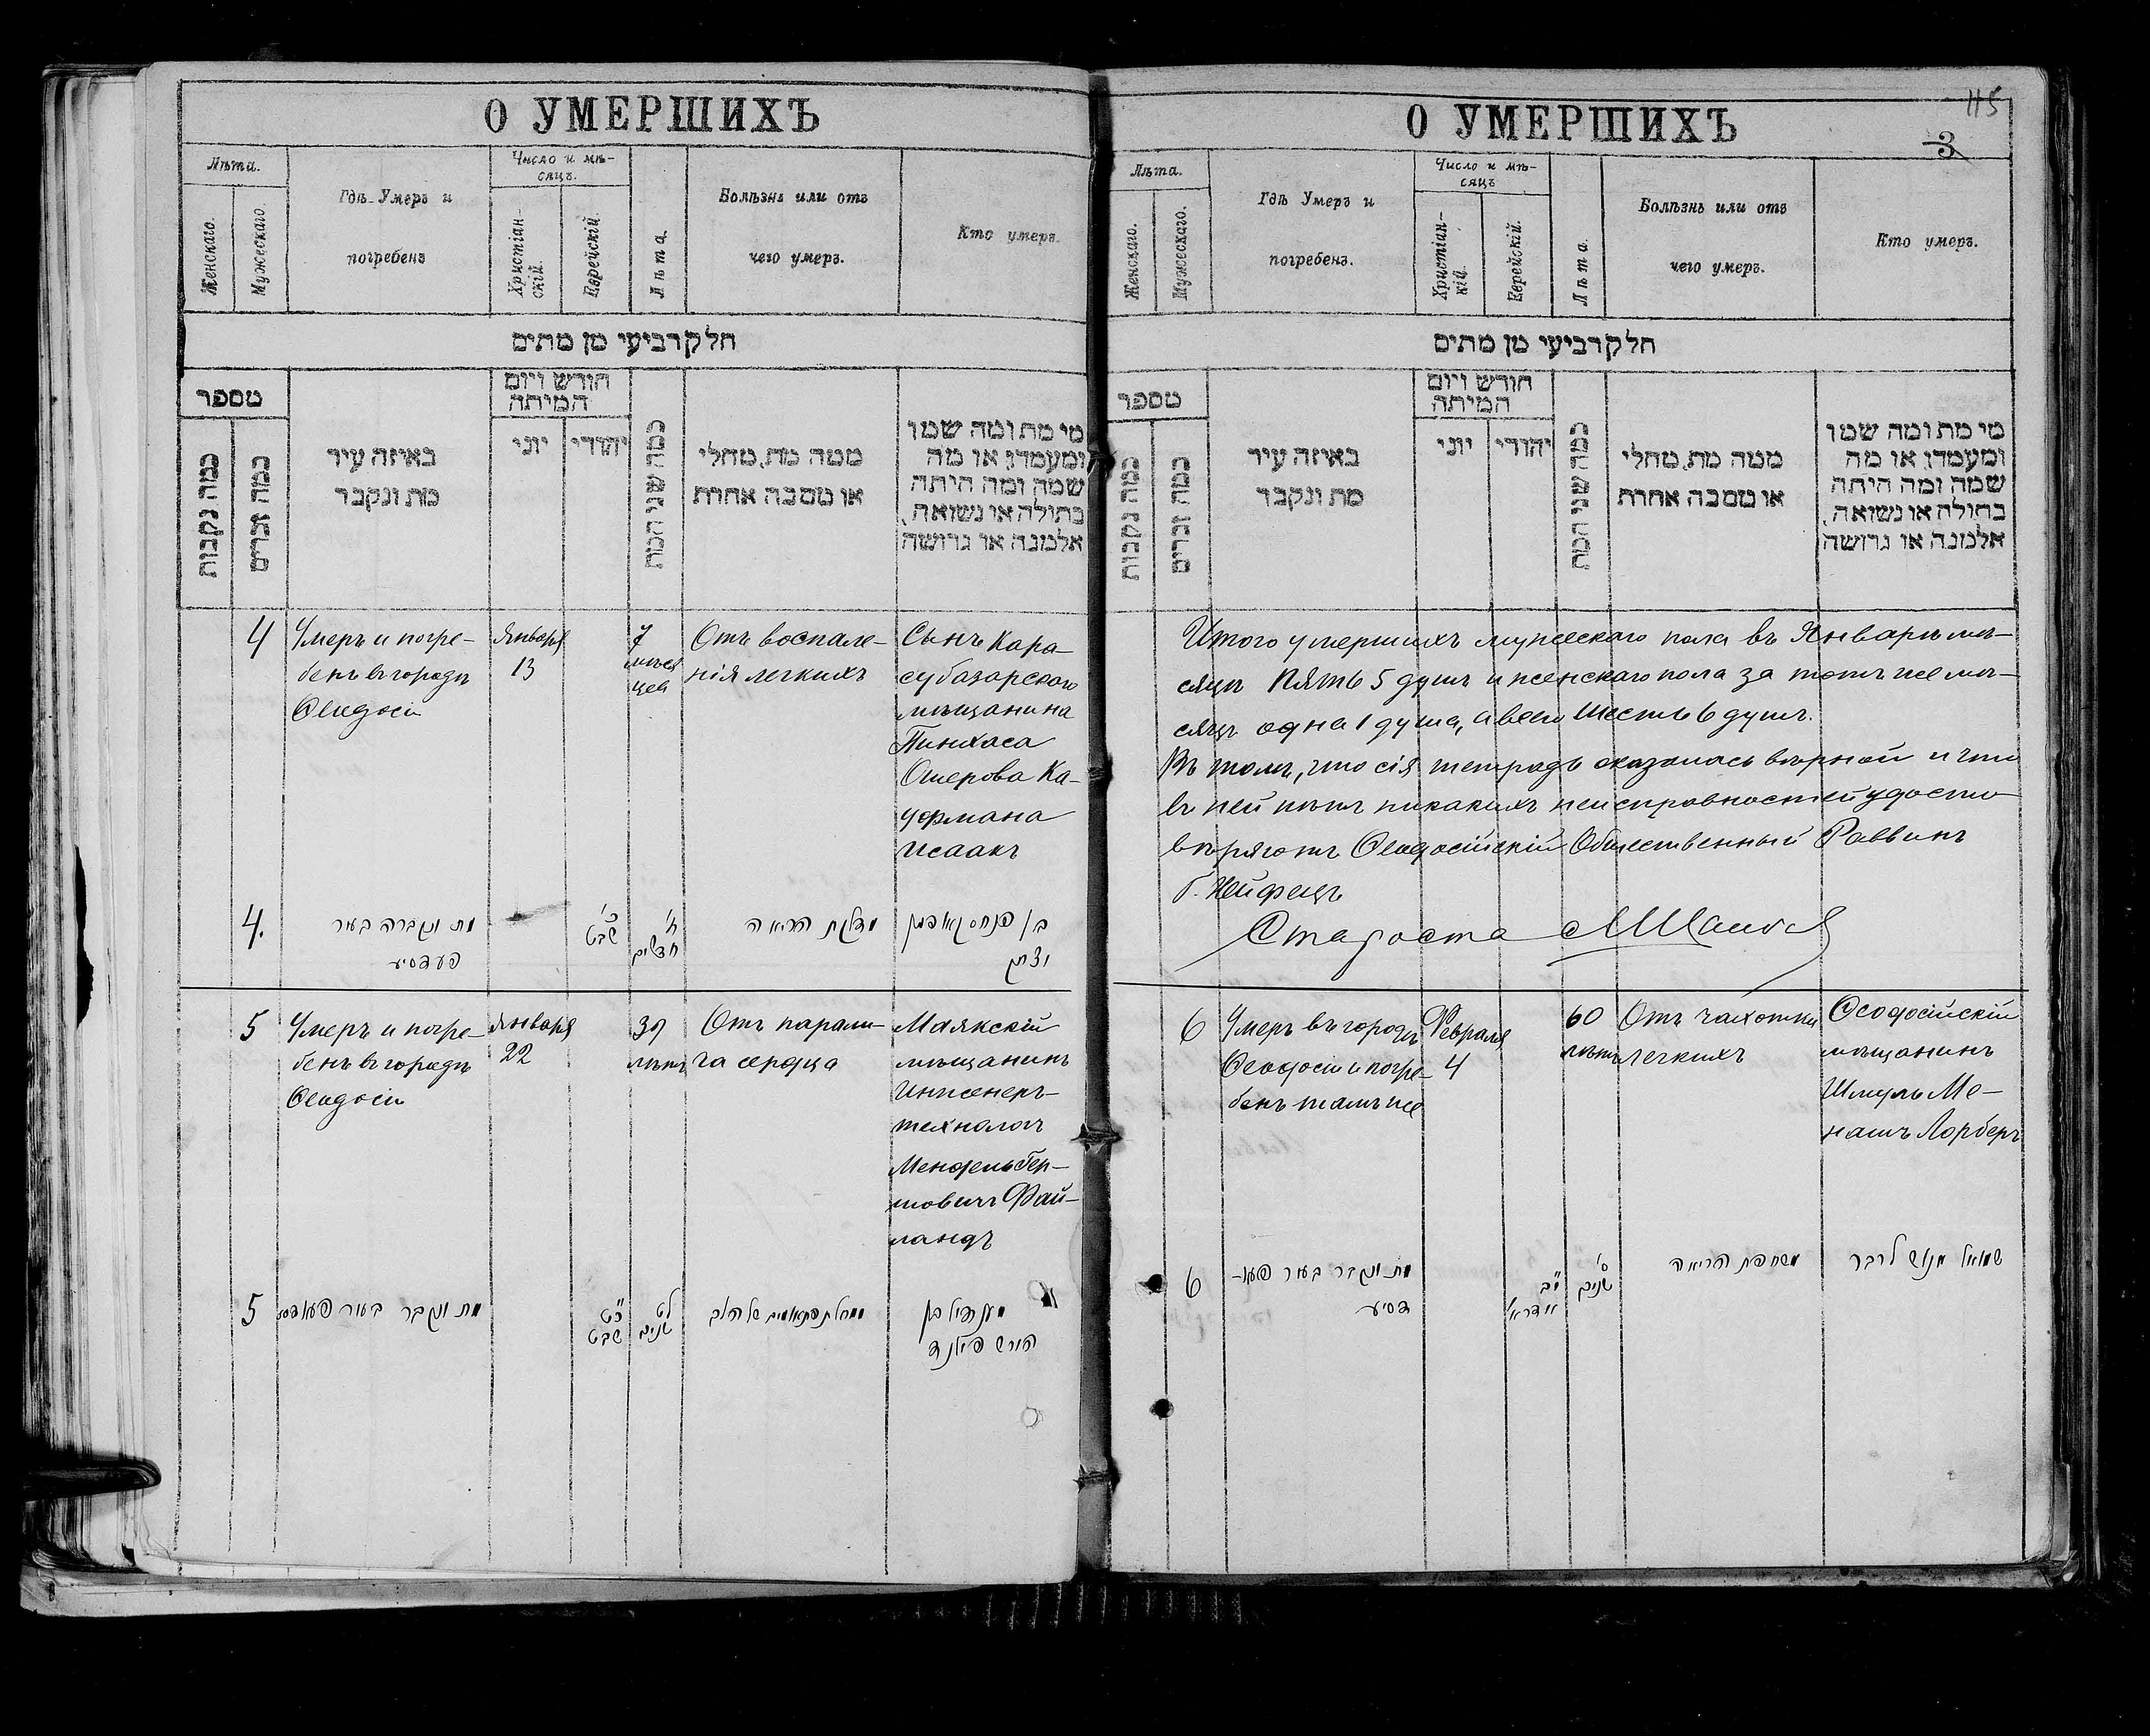 О УМЕРШИХЪ
Лѣта.
Женскаго.
Мужескаго.
Гдѣ Умеръ и
погребенъ
Число и мѣ-
сяцъ.
Христіан-
скій.
Еврейскій.
Лѣта.
Болѣзнь или отъ
чего умеръ.
Кто умеръ.
חלק רביעי מן מתים
מספר
כמה נקבות
כמה זכרים
באיזה עיר
מת ונקבר
חודש ויום
המיתה
יוני
יהודי
כמה שני המת
ממה מת, מחלי
או מסבה אחרת
מי מת ומה שמו
ומעמדו או מה
שמה ומה היתה
בתולה או נשואה,
אלמנה או גרושה
4
Умеръ и погре-
бенъ въ городѣ
Ѳеодосіи
Января
13
7
мѣся
цев
Отъ воспале-
нія легкихъ
Сынъ Кара-
субазарского
мѣщанина
Пинхаса
Ошерова Ка-
уфмана
Исаакъ
4.
מת ונקברה בעיר
כ'
שבט
ז'
חדשים
מדלקת הריאה
בן פנחס קאופמן
יצחק
5
Умеръ и погре-
бенъ въ городѣ
Ѳеодосіи
Января
22
39
лѣтъ
Отъ парали-
ча сердца
Маякскій
мѣщанинъ
Инженеръ-
технологъ
Мендель Гер-
шовичъ Фай-
ландъ
5
מת ונקבר בעיר
כ"ט
שבט
לט
שנים
של הלב
מענדיל בן
הירש פילנד
О УМЕРШИХЪ
115
3
Лѣта.
Женскаго.
Мужескаго.
Гдѣ Умеръ и
погребенъ.
Число и мѣ-
сяцъ
Христіан-
кій.
Еврейскій.
Лѣта.
Болѣзнь или отъ
чего умеръ.
Кто умеръ.
חלק רביעי מן מתים
מספר
כמה נקבות
כמה זכרים
באיזה עיר
מת ונקבר
חודש ויום
המיתה
יוני
יהודי
כמה שני המת
ממה מת, מחלי
או מסבה אחרת
מי מת ומה שמו
ומעמדו או מה
שמה ומה היתה
בתולה או נשואה,
אלמנה או גרושה
Итого умершихъ мужескаго пола въ Январѣ мѣ-
сяцѣ Пять 5 душъ и женскаго пола за тотъ же мѣ-
сяцъ одна 1 душа, а всего Шесть 6 душъ.
Въ томъ, что сія тетрадь оказалась вѣрной и что
въ ней нѣтъ никакихъ неисправностей удосто-
вѣряютъ Ѳеодосійскій Общественный Раввинъ
Б. Хейфецъ
Староста
6
Умеръ въ городѣ
Ѳеодосіи и погре-
бенъ тамъ же
Февраля
4
60
лѣтъ
Отъ чахотки
легкихъ
Ѳеодосійскій
мѣщанинъ
Шмуль Ме-
нашъ Лорберъ
6
מת ונקבר בעיר פעו-
דסיע
י"ב
אדר א'
ס'
שנים
משחפת הריאה
שמואל מנש לרבר